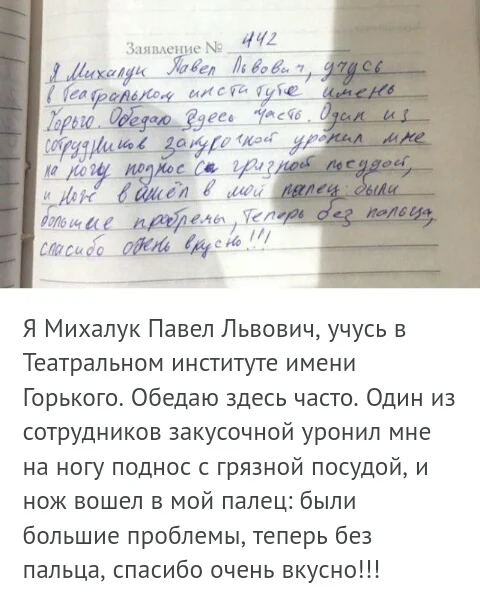 Заявление № 442
Я Михалук Павел Львович, учусь
в Театральном институте имень
Горьго. Обедаю здесь часть. Один из
сотрудников закурочной уронил мне
на ногу поднос са грязной посудой,
и нож вашёл в мой палец: были
большие проблемы, теперь без пальца,
спасибо очень вкусно!!!
Я Михалук Павел Львович, учусь в
Театральном институте имени
Горького. Обедаю здесь часто. Один из
сотрудников закусочной уронил мне
на ногу поднос с грязной посудой, и
нож вошел в мой палец: были
большие проблемы, теперь без
пальца, спасибо очень вкусно!!!